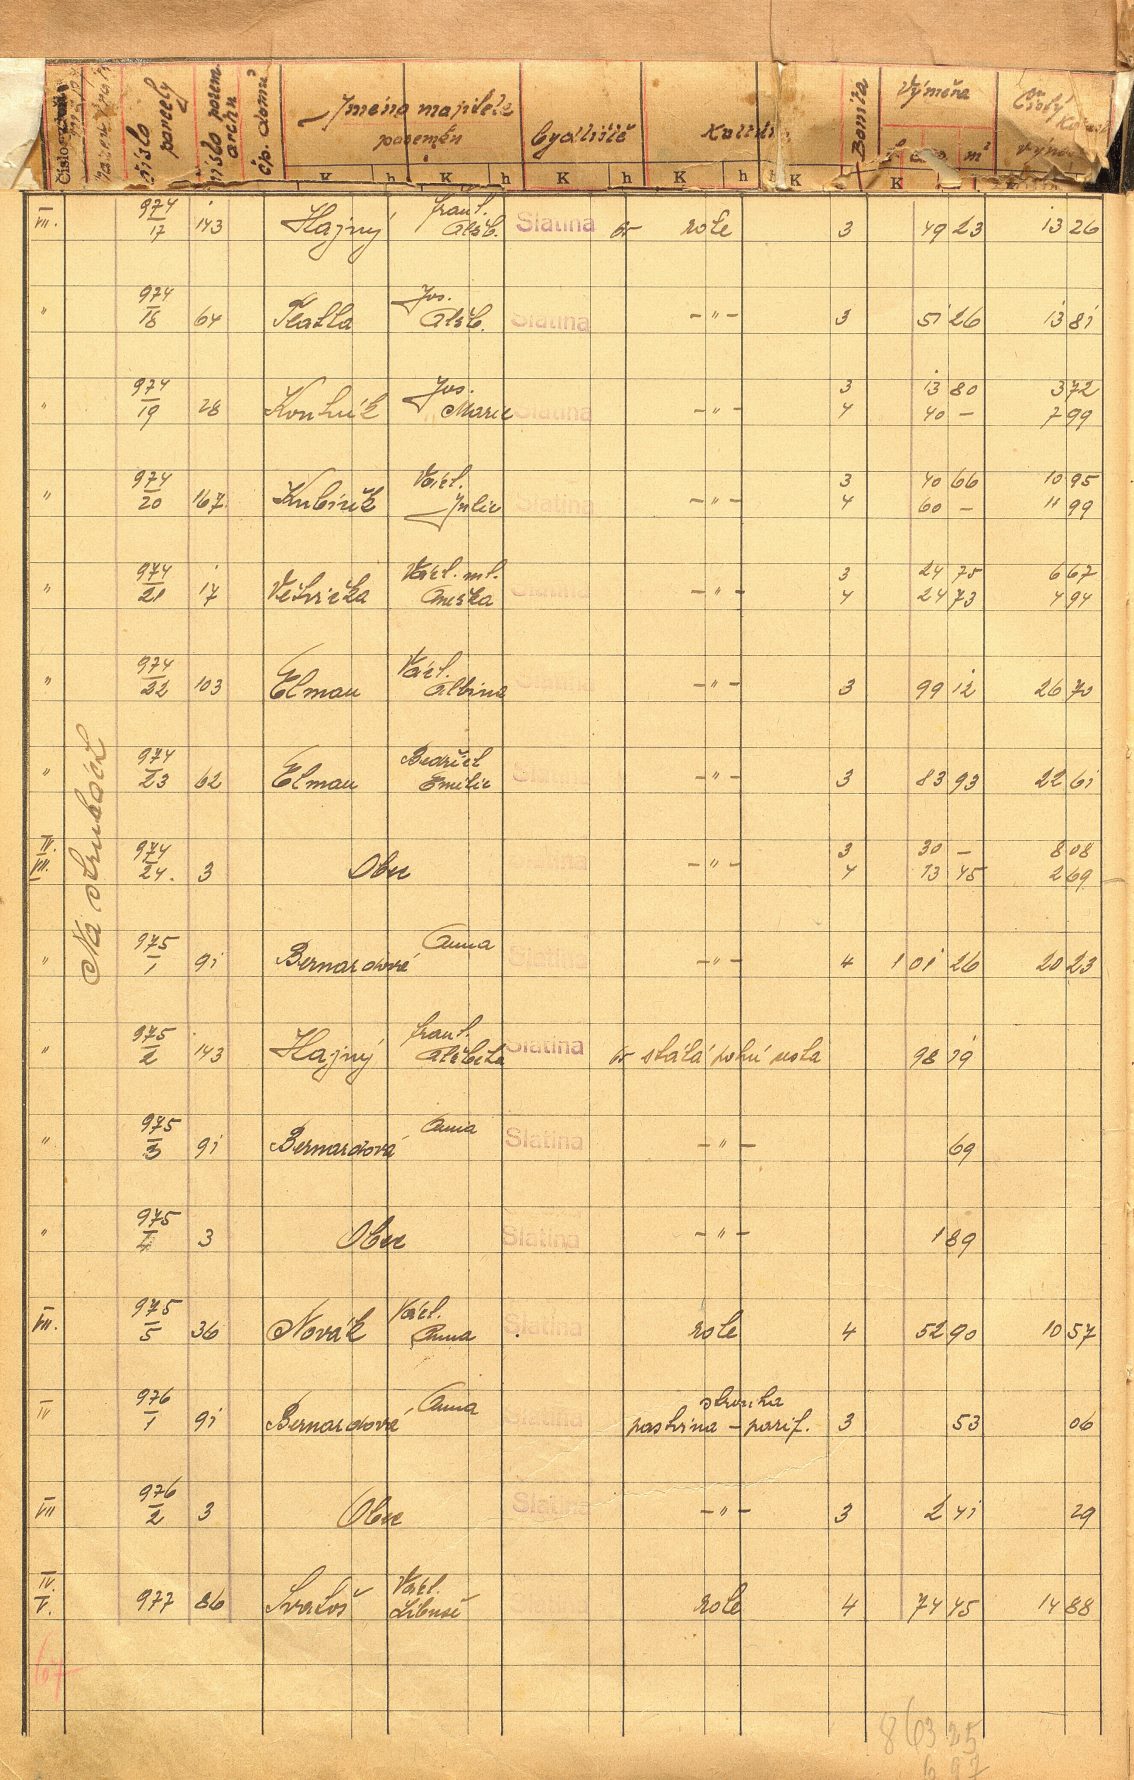 číslo parcely
číslo pozem. archu
čp. domu
Jméno majitele pozemku
Bydliště
Bonita
Výměra
Čistý
K h K h K h K h K K
VII. 974/17 143 Hajný Frant. Alžb. Slatina role 3 49 23 13 26
" 974/18 64 Jos. Alžb. Slatina -"- 3 51 26 13 81
" 974/19 28 Jos. Marie Slatina -"- 3 13 80 3 72
4 40 - 7 99
" 974/20 167 Kubíček Václ. Julie Slatina -"- 3 40 66 10 95
4 60 - 11 99
" 974/21 17 Větvička Václ. ml. Anežka Slatina -"- 3 24 75 6 67
4 24 73 4 94
" 974/22 103 Elman Václ. Albina Slatina -"- 3 99 12 26 70
" 974/23 62 Elman Bedřich Emilie Slatina -"- 3 83 93 22 61
IV. VII. 974/24. 3 Obec Slatina -"- 3 30 - 8 08
4 13 45 2 69
" 975/1 91 Bernardová Anna Slatina -"- 4 1 01 26 20 23
" 975/2 143 Hajný Frant. Alžběta Slatina 98 19
" 975/3 91 Bernardová Anna Slatina -"- 69
" 975/4 3 Obec Slatina -"- 1 89
VII. 975/5 36 Novák Václ. Anna Slatina role 4 52 90 10 57
976/1 91 Bernardová Anna Slatina strouha
pastvina - parif. 3 53 06
VII 976/2 3 Obec Slatina -"- 3 2 41 29
IV. V. 977 86 Svatoš Václ. Libuše role 4 74 45 14 88
67
8 63 25